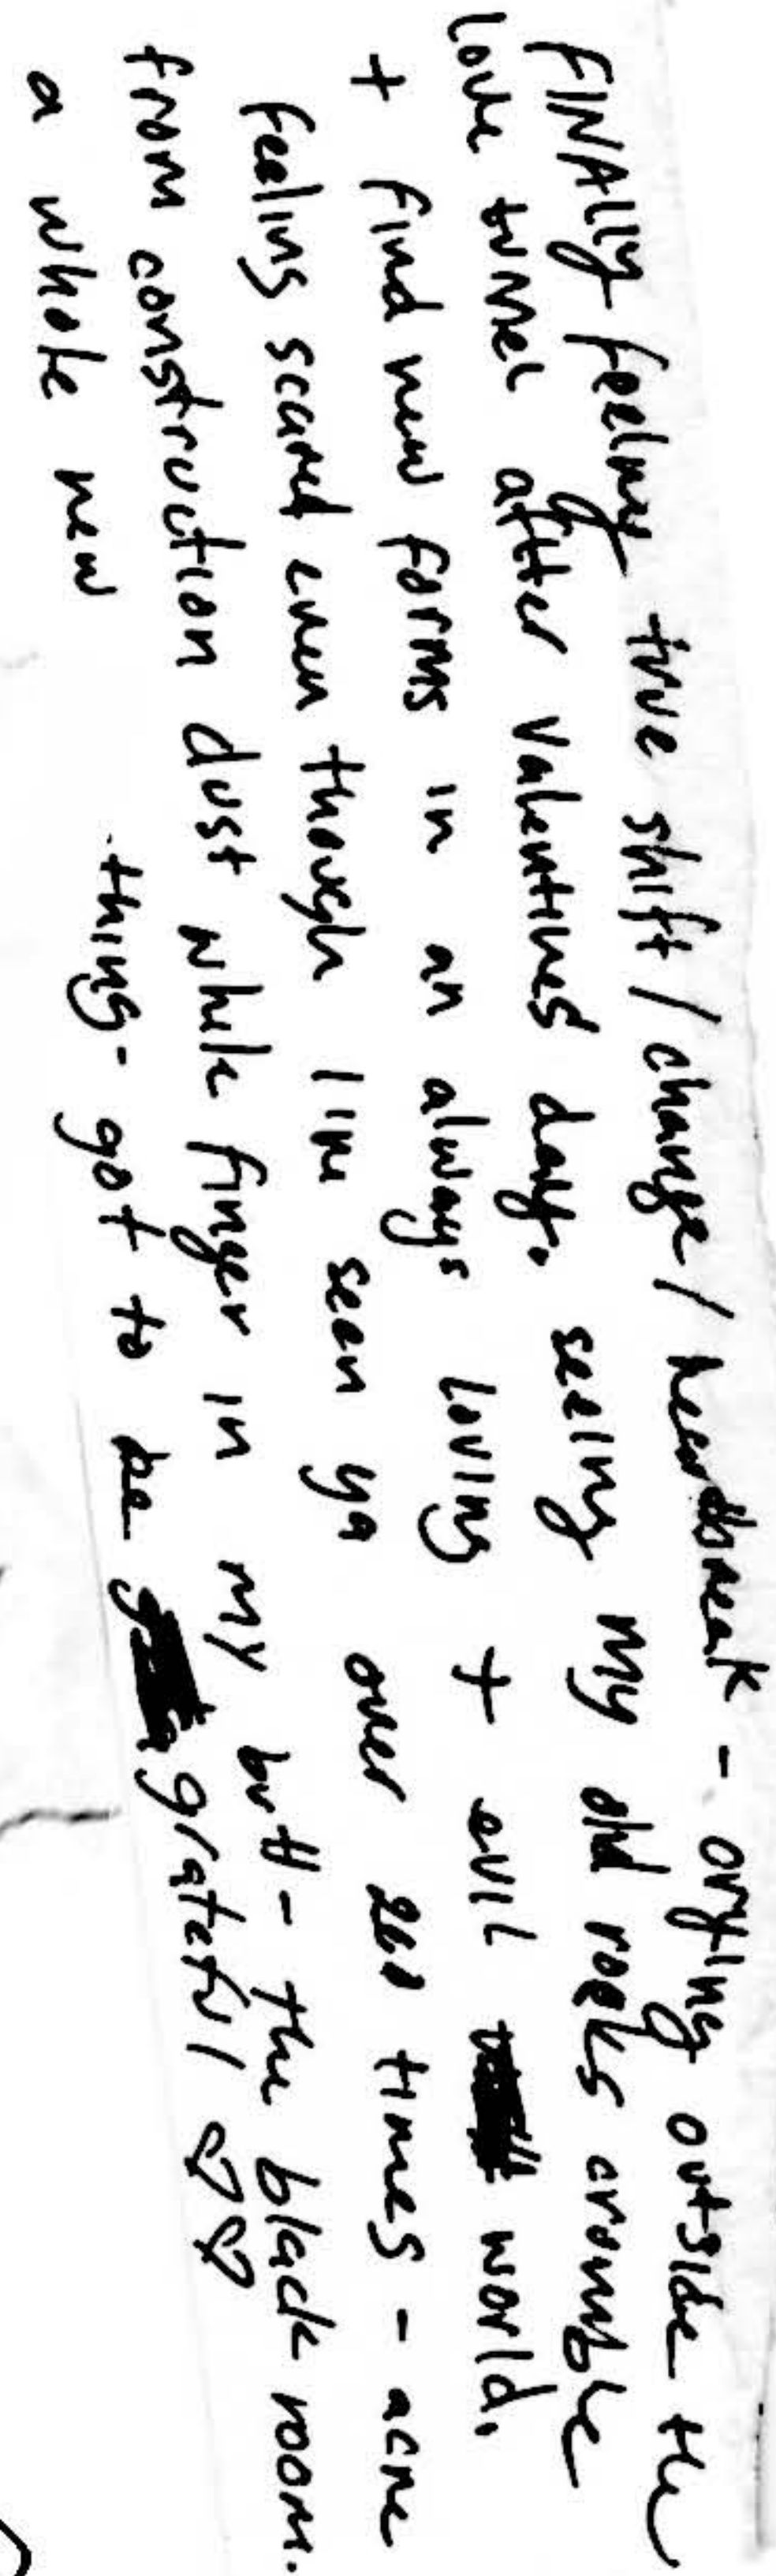 FINAlly feeling true shift / change / heartbreak - crying outside the
love tunnel after valentines day. seeing my old rocks crumble
+ find new forms in an always loving + evil world.
feeling scared even though I've seen ya over 200 times - acne
from construction dust while finger in my butt - the black room.
a whole new thing - got to be grateful ♡♡